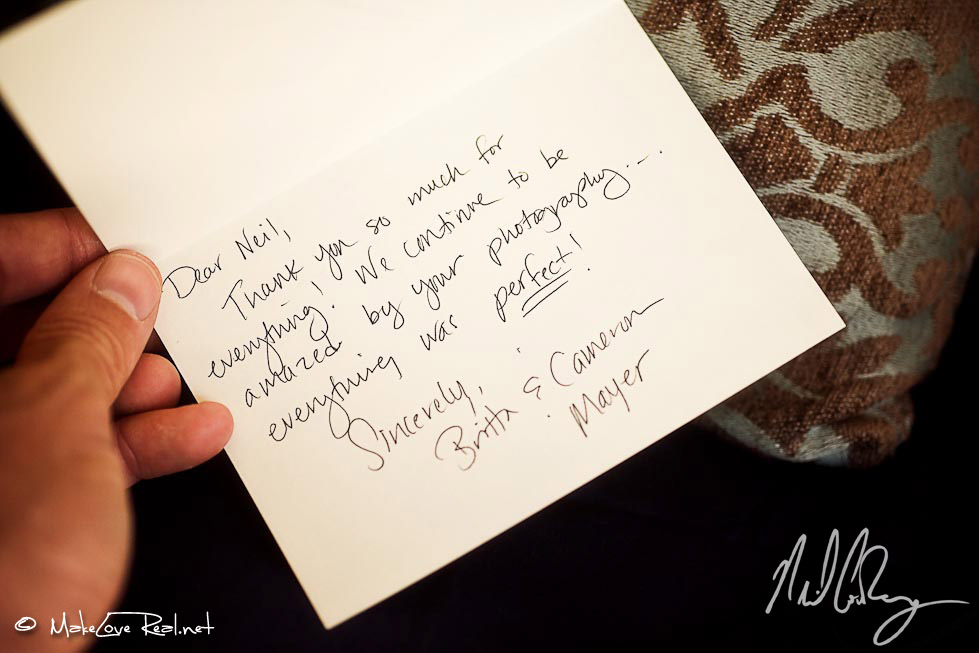 Dear Neil,
Thank you so much for
everything! We continue to be
amazed by your photography....
everything was perfect!
Sincerely,
Britta & Cameron
Mayer
© MakeLove Real.net